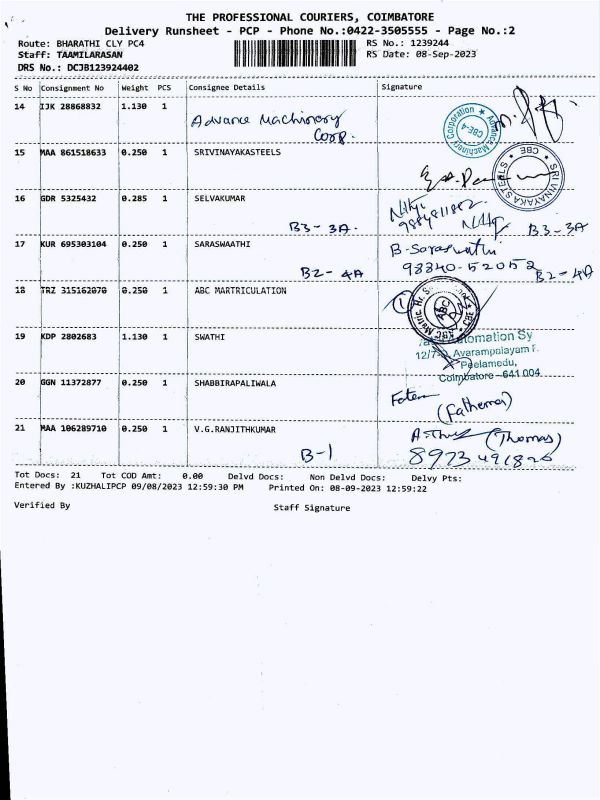 THE PROFESSIONAL COURIERS, COIMBATORE
Delivery Runsheet - PCP - Phone No.:0422-3505555 - Page No.:2
Route: BHARATHI CLY PC4 RS No.: 1239244
Staff: TAAMILARASAN RS Date: 08-Sep-2023
DRS No.: DCJB123924402
S No Consignment No Weight PCS Consignee Details Signature
14 IJK 28868832 1.130 1 Advance Machinery Corp.
Advance Machinery Corporation CBE-4
15 MAA 861518633 0.250 1 SRIVINAYAKASTEELS
SRI VINAYAKA STEELS CBE
16 GDR 5325432 0.285 1 SELVAKUMAR
B3-3A. B3-3A
17 KUR 695303104 0.250 1 SARASWAATHI B-Saraswathi
B2-4A 98840-52052 B2-4A
18 TRZ 315162070 0.250 1 ABC MARTRICULATION
ABC Matric. Hr. S ABC CBE
19 KDP 2802683 1.130 1 SWATHI
tomation Sy
12/7 Avarampalayam
Peelamedu,
Coimbatore - 641 004
20 GGN 11372877 0.250 1 SHABBIRAPALIWALA
(Fathema)
21 MAA 106289710 0.250 1 V.G.RANJITHKUMAR (Thomas)
B-1 8973491826
Tot Docs: 21 Tot COD Amt: 0.00 Delvd Docs: Non Delvd Docs: Delvy Pts:
Entered By :KUZHALIPCP 09/08/2023 12:59:30 PM Printed On: 08-09-2023 12:59:22
Verified By Staff Signature